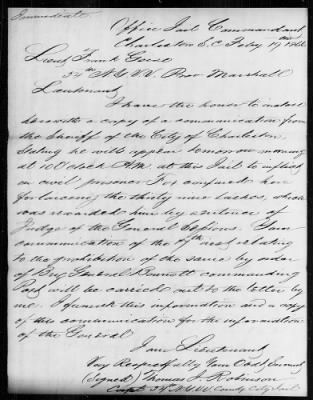 Immediate
Office Jail Commandant
Charleston S.C. Feby 19 1866
Lieut Frank Geise
54th N.Y.V.V. Prov Marshall
Lieutenant
I have the honor to inclose
herewith a copy of a communication from
the Sheriff of the City of Charleston
stating he will appear tomorrow morning
at 10 O'clock A.M. at this Jail to inflict
on civil prisoner Fox confined here
for larceny the thirty nine lashes, which
was awarded him by a sentence of
Judge of the General Sessions. Your
communication of the inst relating
to the prohibition of the same by order
of Brig General Bennett commanding
Post will be carried out to the letter by
me. I furnish this information and a copy
of this communication for the information
of the General
I am Lieutenant
Very Respectfully Your Obdt Servant
(Signed) Thomas J. Robinson
Capt 54th N.Y.V.V. Comdg City Jail